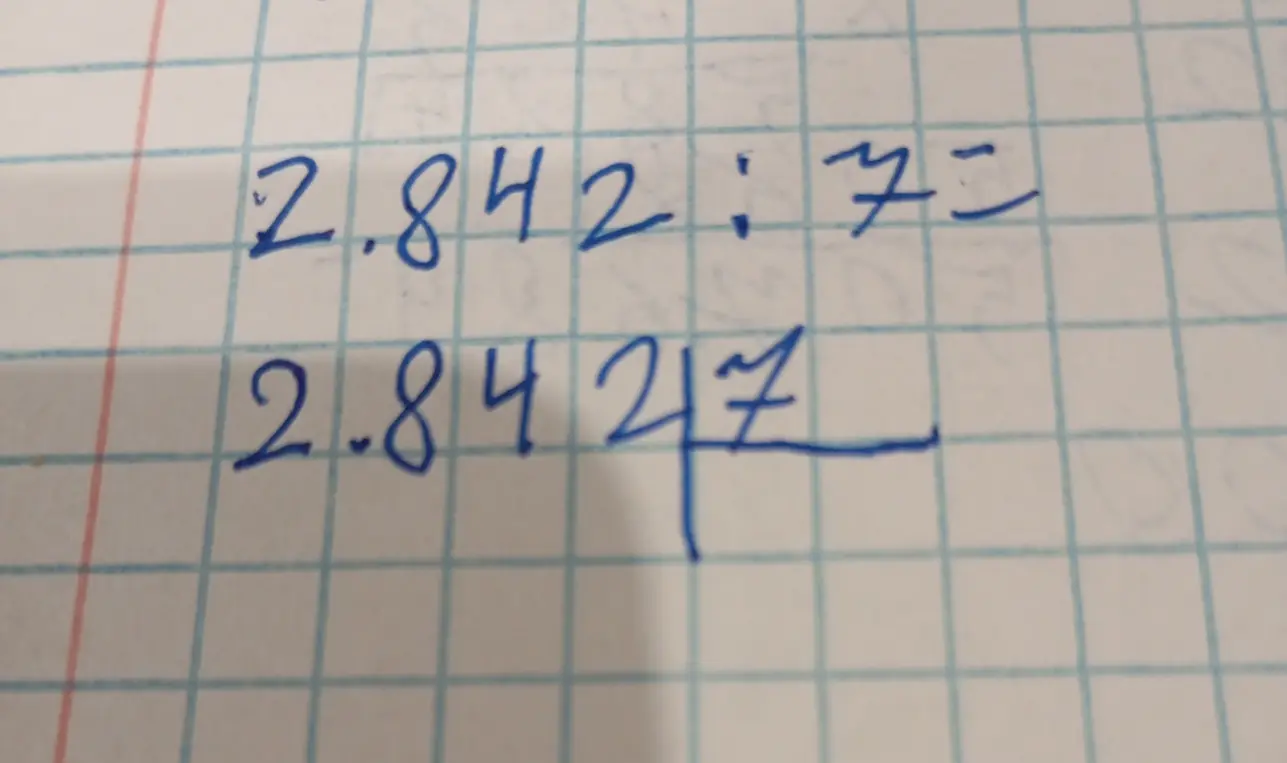 2.842 : 7 =
2.842 7